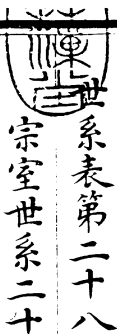 世系表第二十八
宗室世系二十